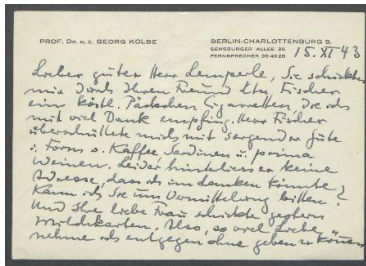 PROF. DR. H. C. GEORG KOLBE
BERLIN-CHARLOTTENBURG 9.
SENSBURGER ALLEE 25
FERNSPRECHER
15. XI 43
Lieber guter Herr Lemperle, Sie schickten
mir durch Ihren Freund Ltn. Fischer
eine köstl. Päckchen Cigaretten die ich
mit viel Dank empfing. Herr Fischer
überschüttete mich mit sorgender Güte
i. Form v. Kaffee Sardinen u. prima
Weinen. Leider hinterliess er keine
Adresse, dass ich ihm danken könnte,
Kann ich Sie um Vermittelung bitten?
Und Ihre liebe Frau schickte gestern
Also, so viel Liebe
nehme ich entgegen ohne geben zu können